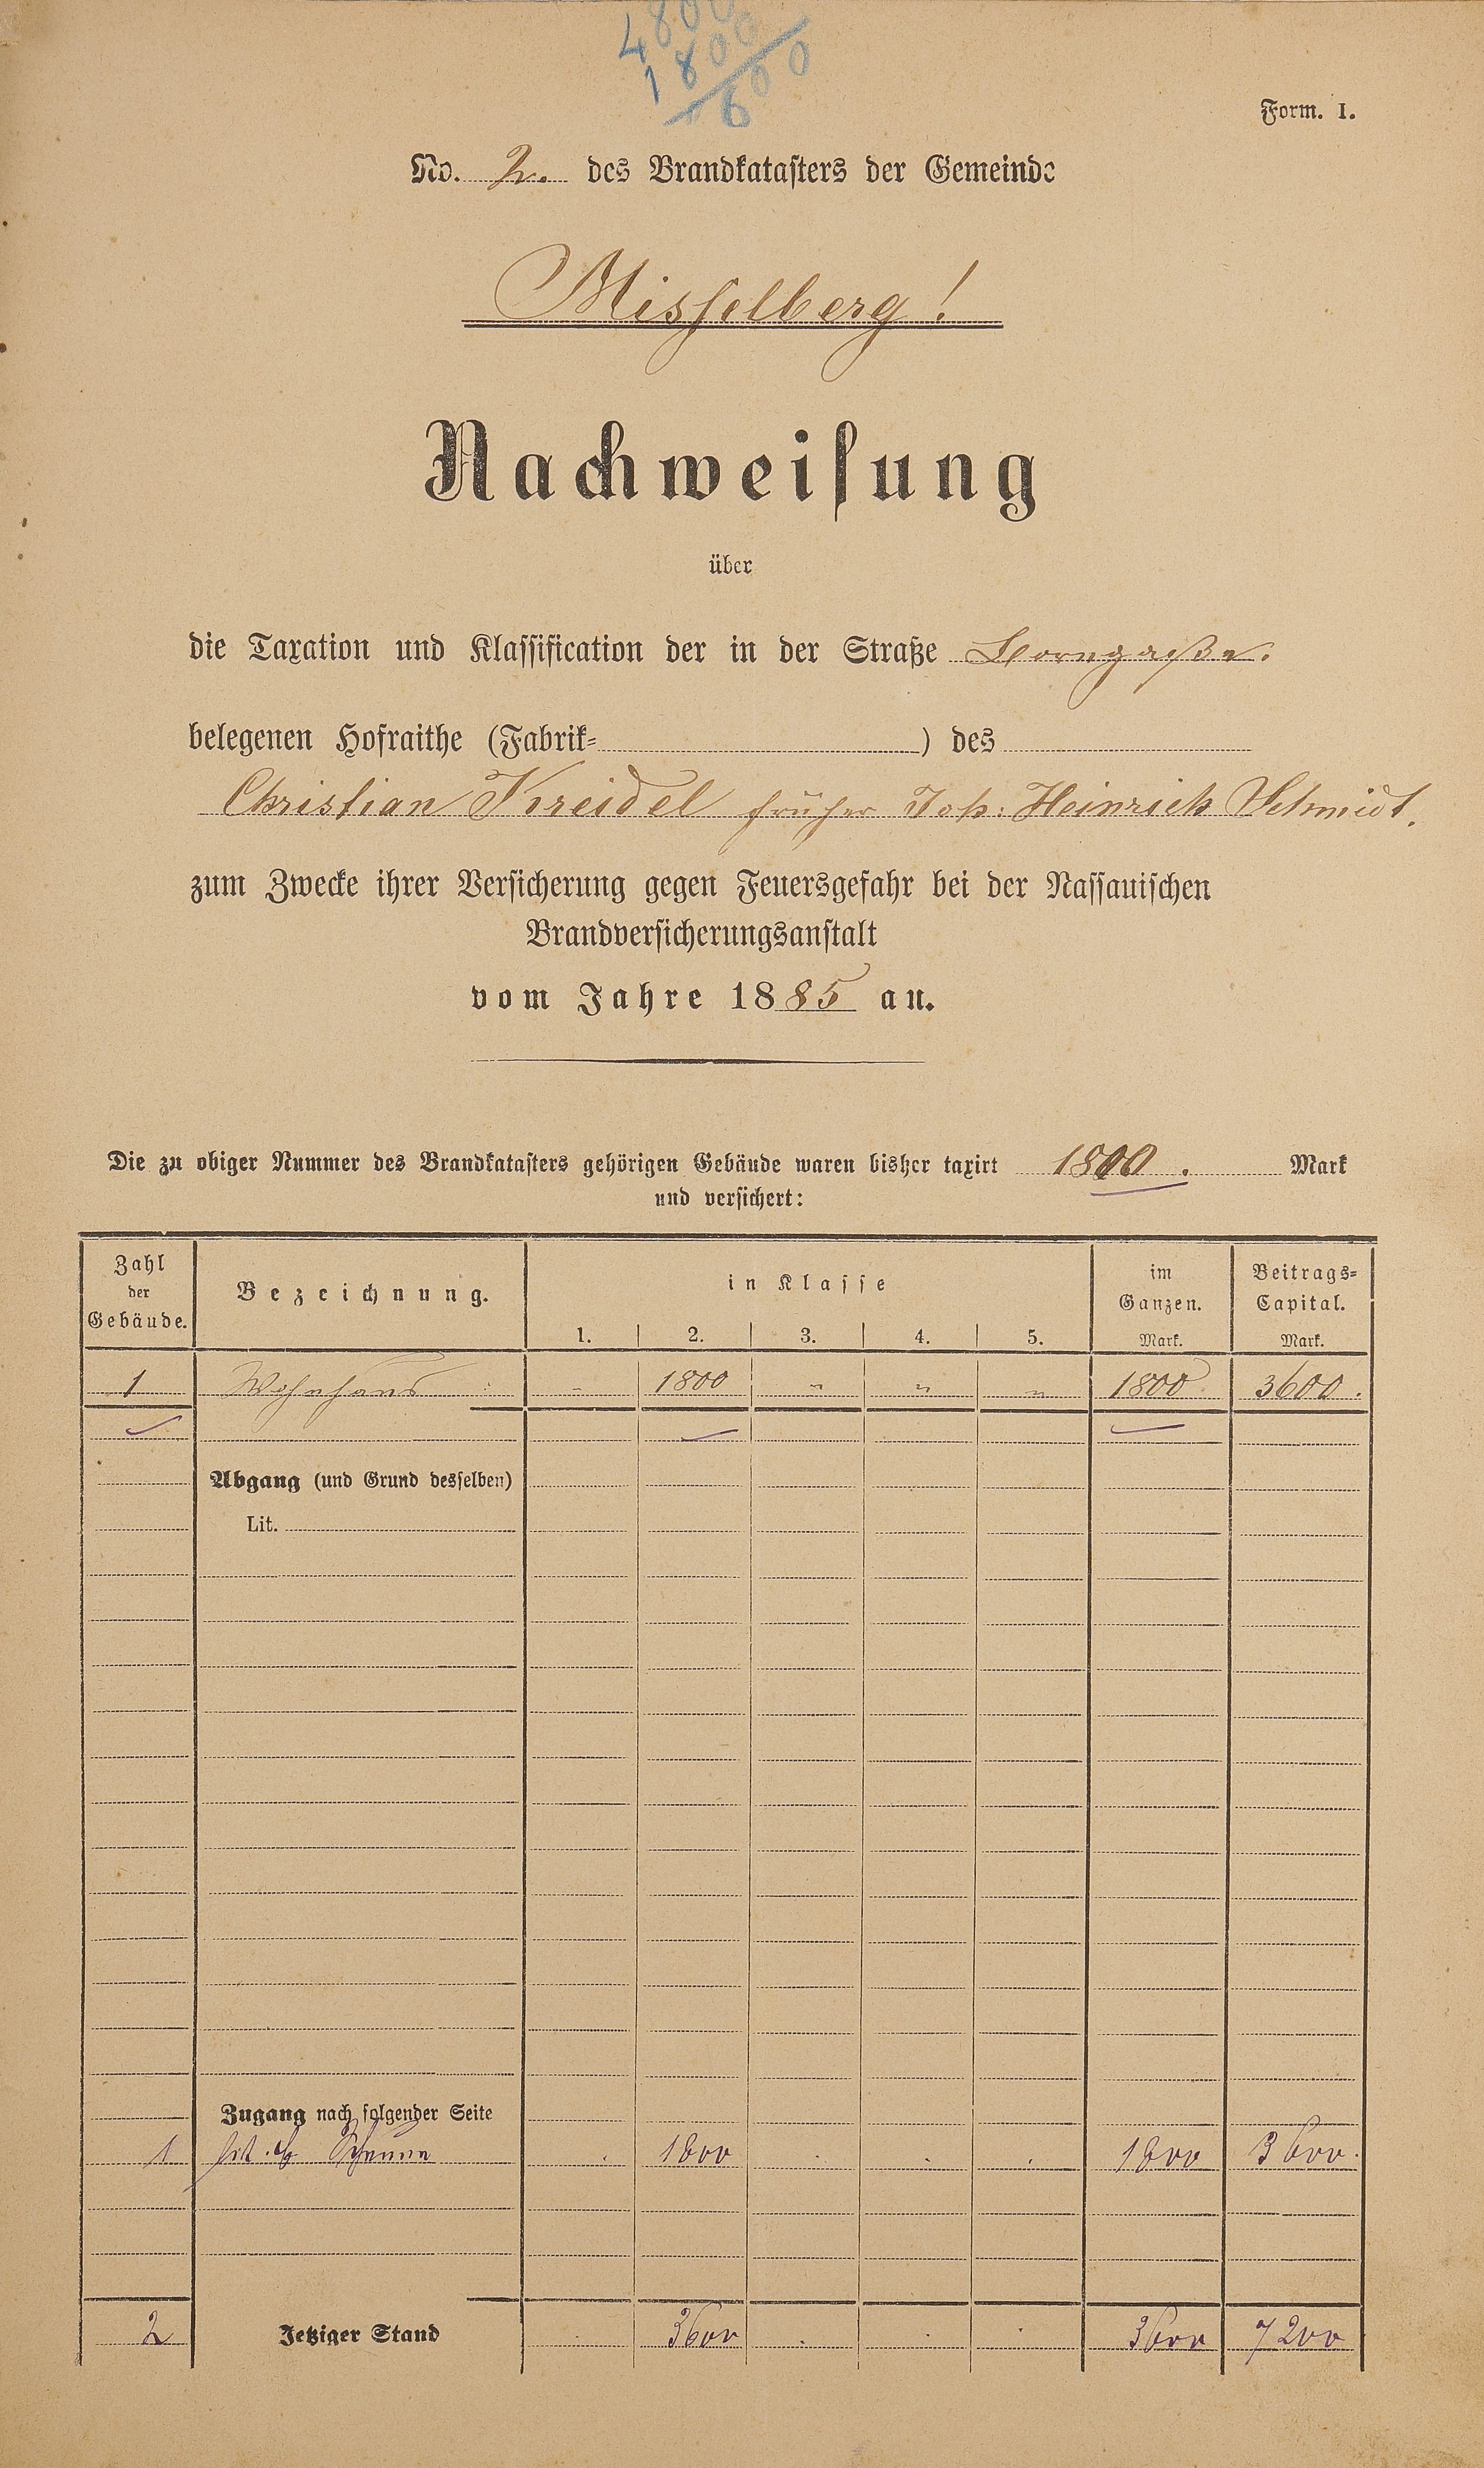 4800
1800
600
Form. I.
No. 2. des Brandkatasters der Gemeinde
Misselberg!
Nachweisung
über
die Taxation und Klassification der in der Straße Borngaße.
belegenen Hofraithe (Fabrik= ) des
Christian Kreidel früher Joh: Heinrich Schmidt.
zum Zwecke ihrer Versicherung gegen Feuersgefahr bei der Nassauischen
Brandversicherungsanstalt
vom Jahre 1885 an.
Die zu obiger Nummer des Brandkatasters gehörigen Gebäude waren bisher taxirt 1800. Mark
und versichert:
Zahl der Gebäude. Bezeichnung. in Klasse im Ganzen. Beitrags=Capital.
1. 2. 3. 4. 5. Mark. Mark.
1 Wohnhaus - 1800 " " " 1800 3600.
Abgang (und Grund desselben)
Lit.
Zugang nach folgender Seite
1 lit. b Scheune . 1800 . . . 1800 3600.
2 Jetziger Stand . 3600 . . . 3600 7200